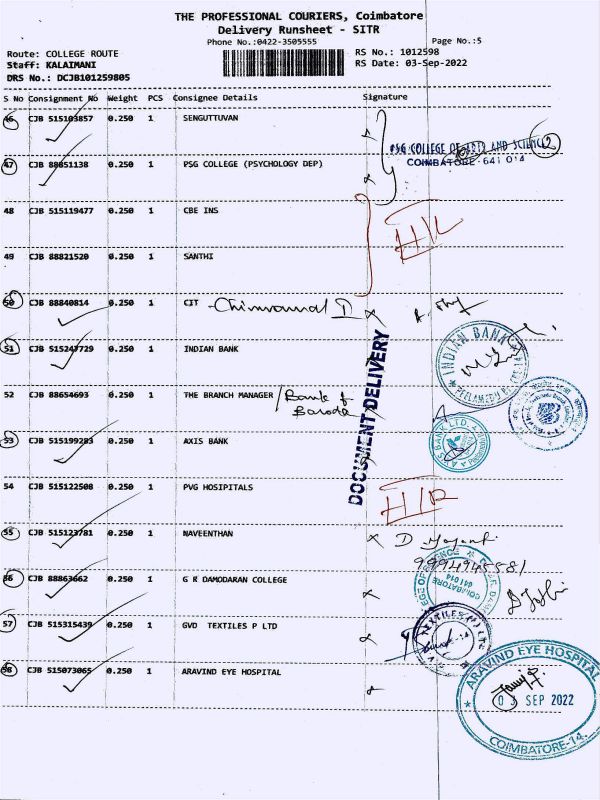 THE PROFESSIONAL COURIERS, Coimbatore
Delivery Runsheet - SITR
Phone No.:0422-3505555
Page No.:5
Route: COLLEGE ROUTE
RS No.: 1012598
Staff: KALAIMANI
RS Date: 03-Sep-2022
DRS No.: DCJB101259805
S No Consignment No Weight PCS Consignee Details Signature
46 CJB 515103857 0.250 1 SENGUTTUVAN
PSG COLLEGE OF ARTS AND SCIENCE 2
COIMBATORE-641 014
47 CJB 88851138 0.250 1 PSG COLLEGE (PSYCHOLOGY DEP)
48 CJB 515119477 0.250 1 CBE INS
49 CJB 88821520 0.250 1 SANTHI
50 CJB 88840814 0.250 1 CIT
51 CJB 515247729 0.250 1 INDIAN BANK
INDIAN BANK
52 CJB 88654693 0.250 1 THE BRANCH MANAGER / Bank of
Baroda
DOCUMENT DELIVERY
53 CJB 515199283 0.250 1 AXIS BANK
54 CJB 515122508 0.250 1 PVG HOSIPITALS
55 CJB 515123781 0.250 1 NAVEENTHAN
9994945581
56 CJB 88863662 0.250 1 G R DAMODARAN COLLEGE
COIMBATORE
641 014
57 CJB 515315439 0.250 1 GVD TEXTILES P LTD
58 CJB 515073065 0.250 1 ARAVIND EYE HOSPITAL
ARAVIND EYE HOSPITAL
03 SEP 2022
COIMBATORE-14.